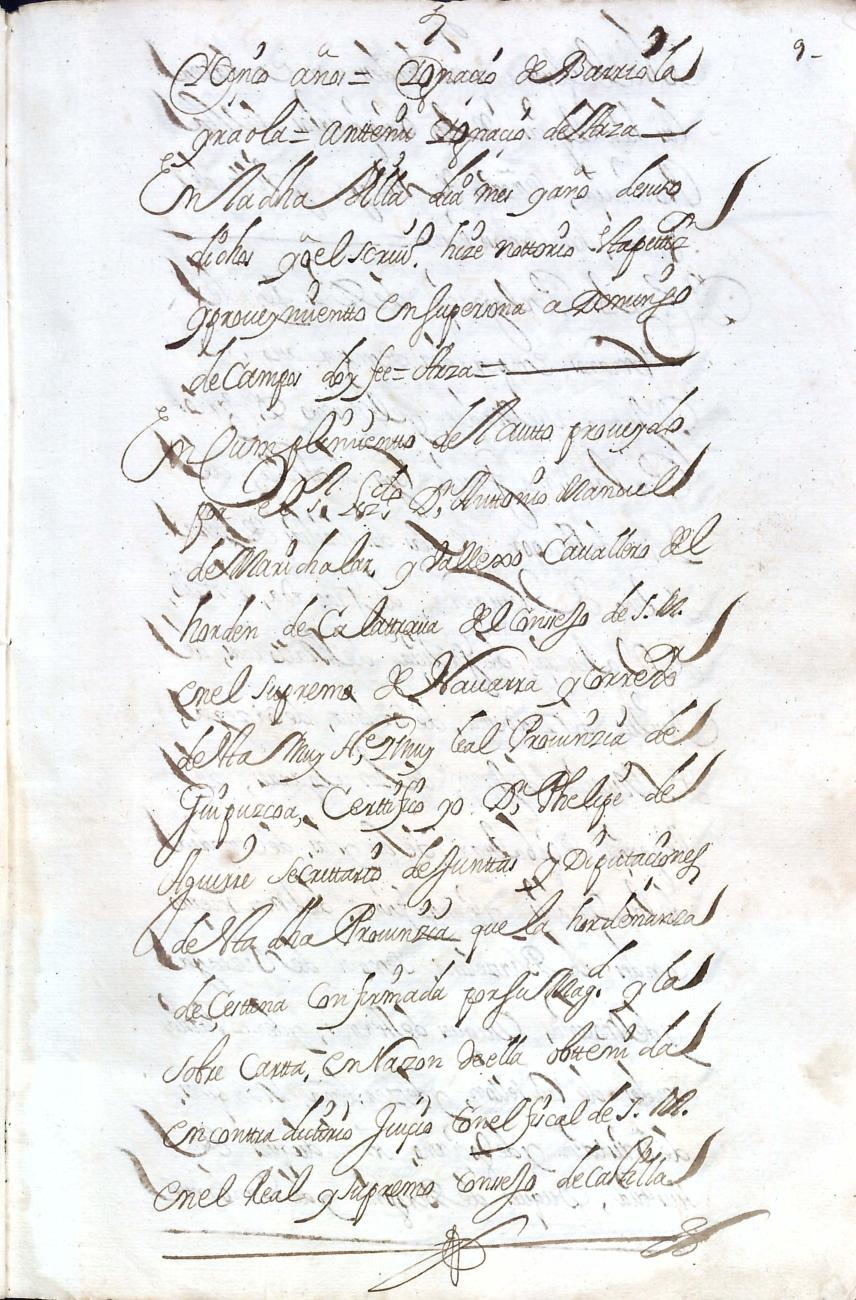 9
y Cinco años = Ygnacio de Barriola
graola = Anttemi Ygnacio de Arza
En la dha Villa dia mes y año de suso
dichos yo el scriuo. hize nottorio esta pettizn
y proueymientto en su persona a Domingo
de Campos doy fee = Arza =
En Cumplimientto del autto proueydo
por el Sr. Lizdo Dn. Anttonio Manuel
de Marichalar y Vallejo Cauallero del
horden de Calattraua del Consejo de S. M.
en el supremo de Nauarra y Corregdr
de esta Muy Ne. y Muy Leal Prouinzia de
Guipuzcoa, Certtifico yo Dn. Phelipe de
Aguirre secrettario de Junttas y Diputaciones
de esta dha Prouinzia que la hordenanza
de Cesttona Confirmada por su Magd. y la
sobre Cartta, en Razon de ella obttenida
en conttradictorio Juicio con el fiscal de S. M.
en el Real y supremo Consejo de Castilla